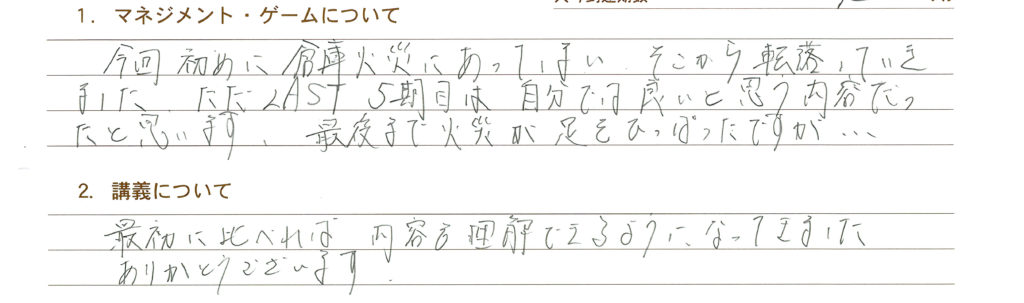 1. マネジメント・ゲームについて
今回初めに倉庫火災にあってしまい、そこから転落していき
ました。ただLAST 5期目は自分では良いと思う内容だっ
たと思います。最後まで火災が足をひっぱったですが…
2. 講義について
最初に比べれば内容を理解できるようになってきました
ありがとうございます.